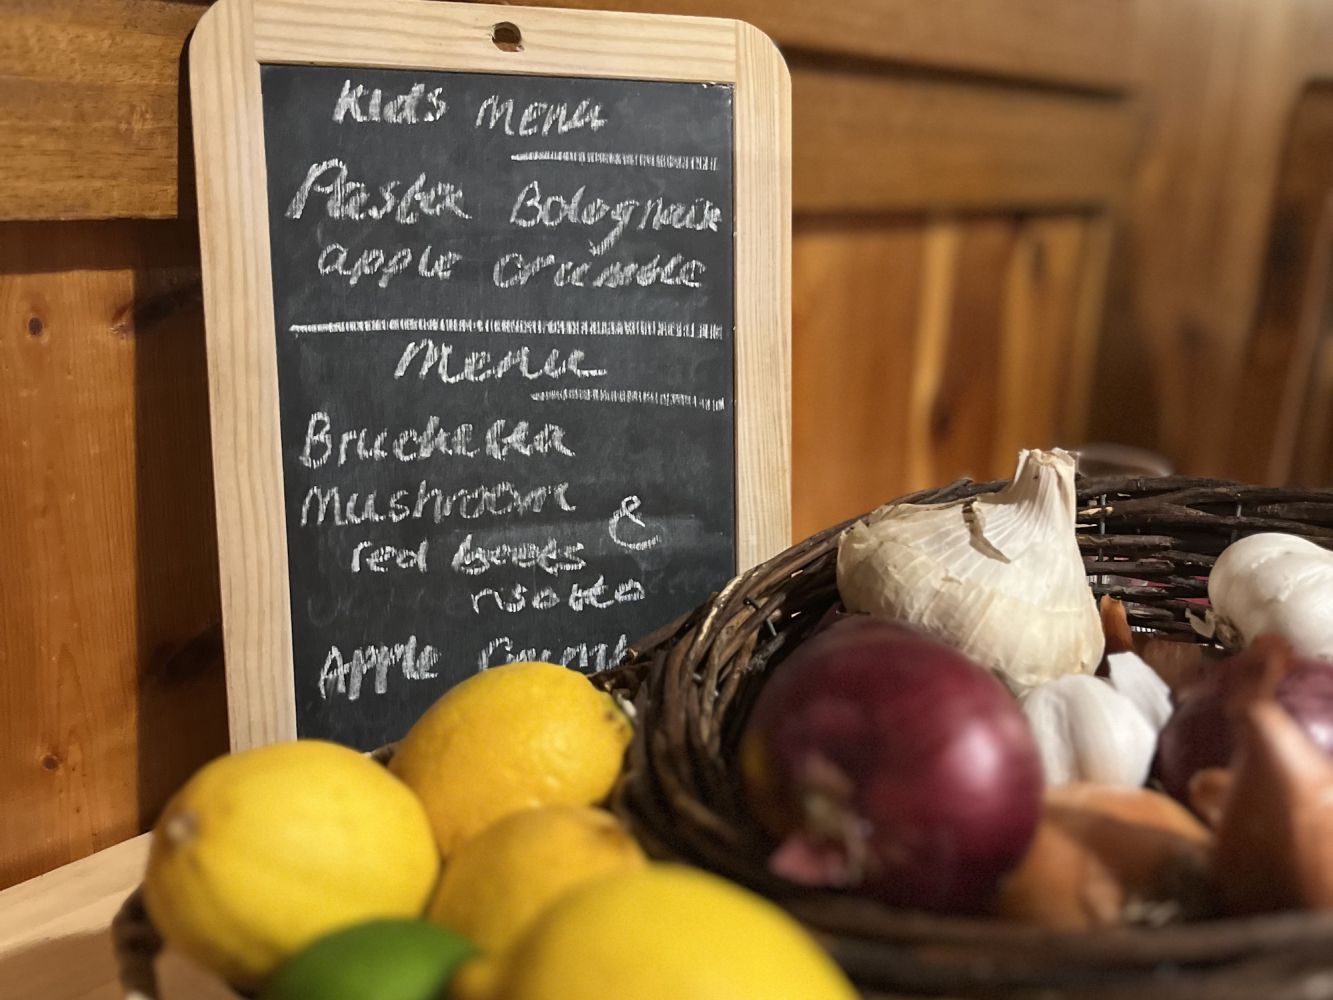 Kids menu
Pasta Bolognaise
apple crumble
Menu
Bruchetta
Mushroom &
red beets
risotto
Apple Crumb